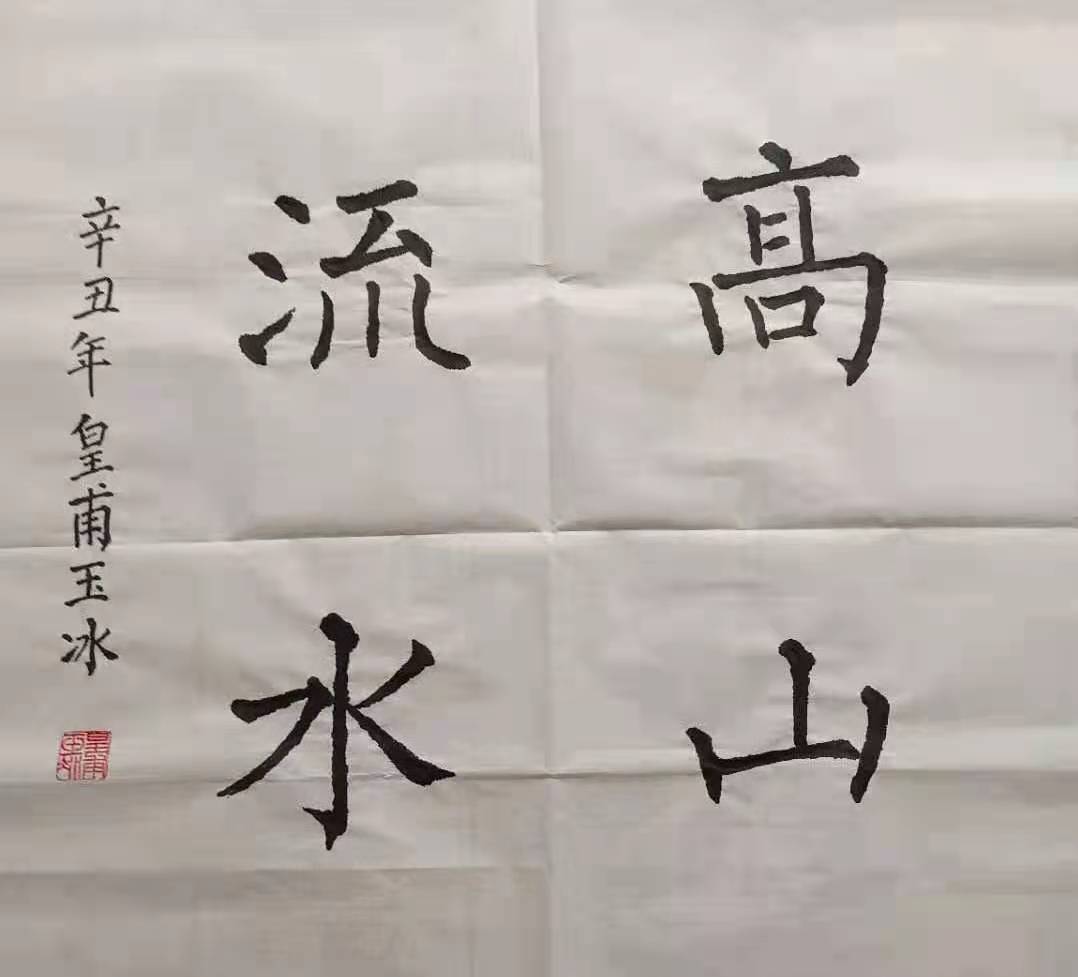 高山
流水
辛丑年皇甫玉冰